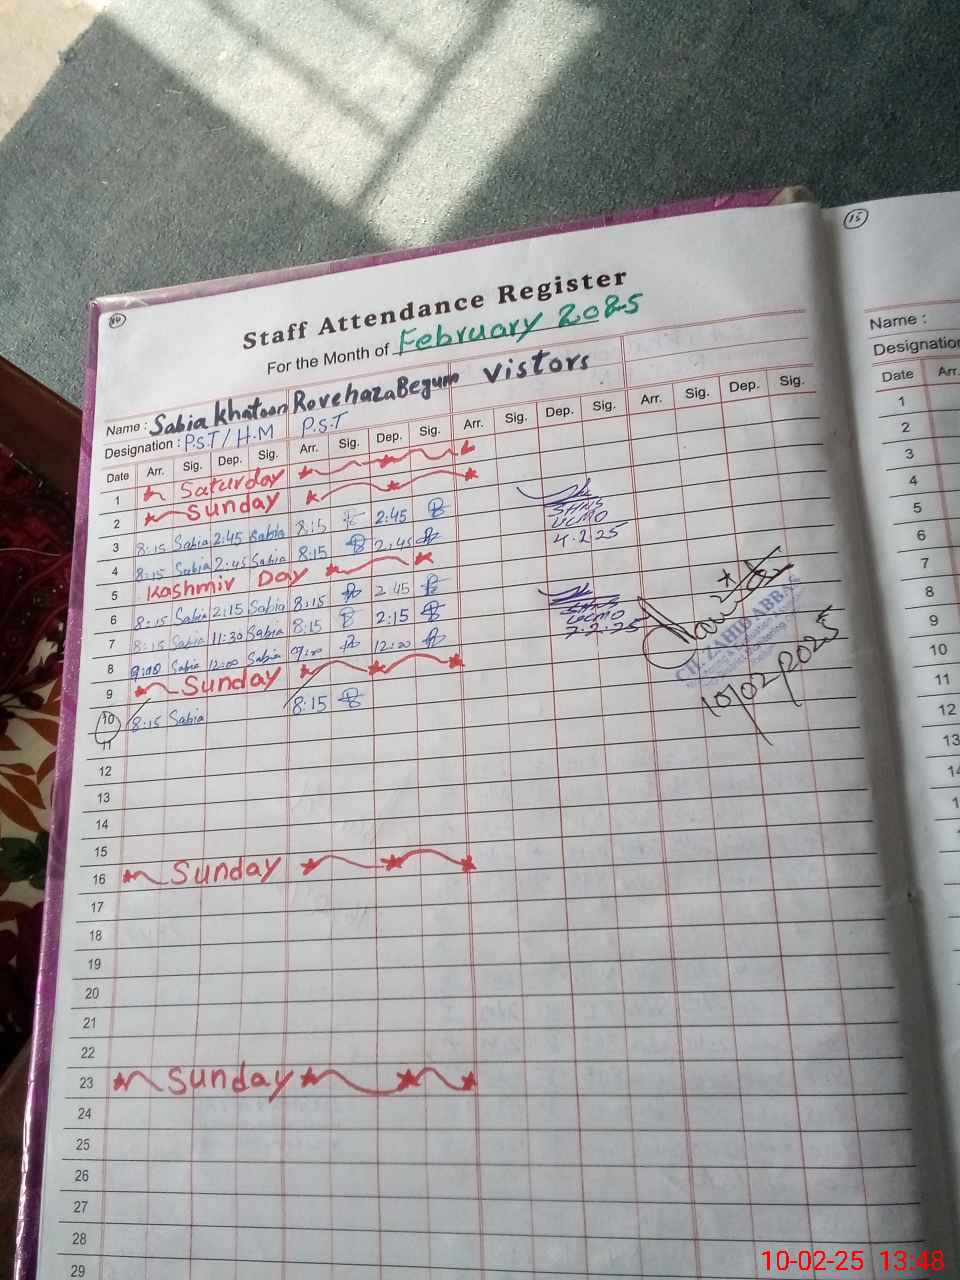 14
15
Staff Attendance Register
For the Month of February 2025
Name : Sabia Khatoon Rovehaza Begum Vistors
Designation : P.S.T / H.M P.S.T
Date Arr. Sig. Dep. Sig. Arr. Sig. Dep. Sig. Arr. Sig. Dep. Sig. Arr. Sig. Dep. Sig.
1 Saturday
2 Sunday
3 8:15 Sabia 2:45 Sabia 8:15 2:45
4 8:15 Sabia 2:45 Sabia 8:15 2:45
5 Kashmir Day
6 8:15 Sabia 2:15 Sabia 8:15 2:45
7 8:15 Sabia 11:30 Sabia 8:15 2:15
8 9:00 Sabia 12:00 Sabia 9:00 12:00
9 Sunday
10 8:15 Sabia 8:15
11
12
13
14
15
16 Sunday
17
18
19
20
21
22
23 Sunday
24
25
26
27
28
29
4.2.25
7.2.25
CH. ZAHID ABBAS
10/02/2025
Name :
Designation
Date Arr.
1
2
3
4
5
6
7
8
9
10
11
12
13
10-02-25 13:48